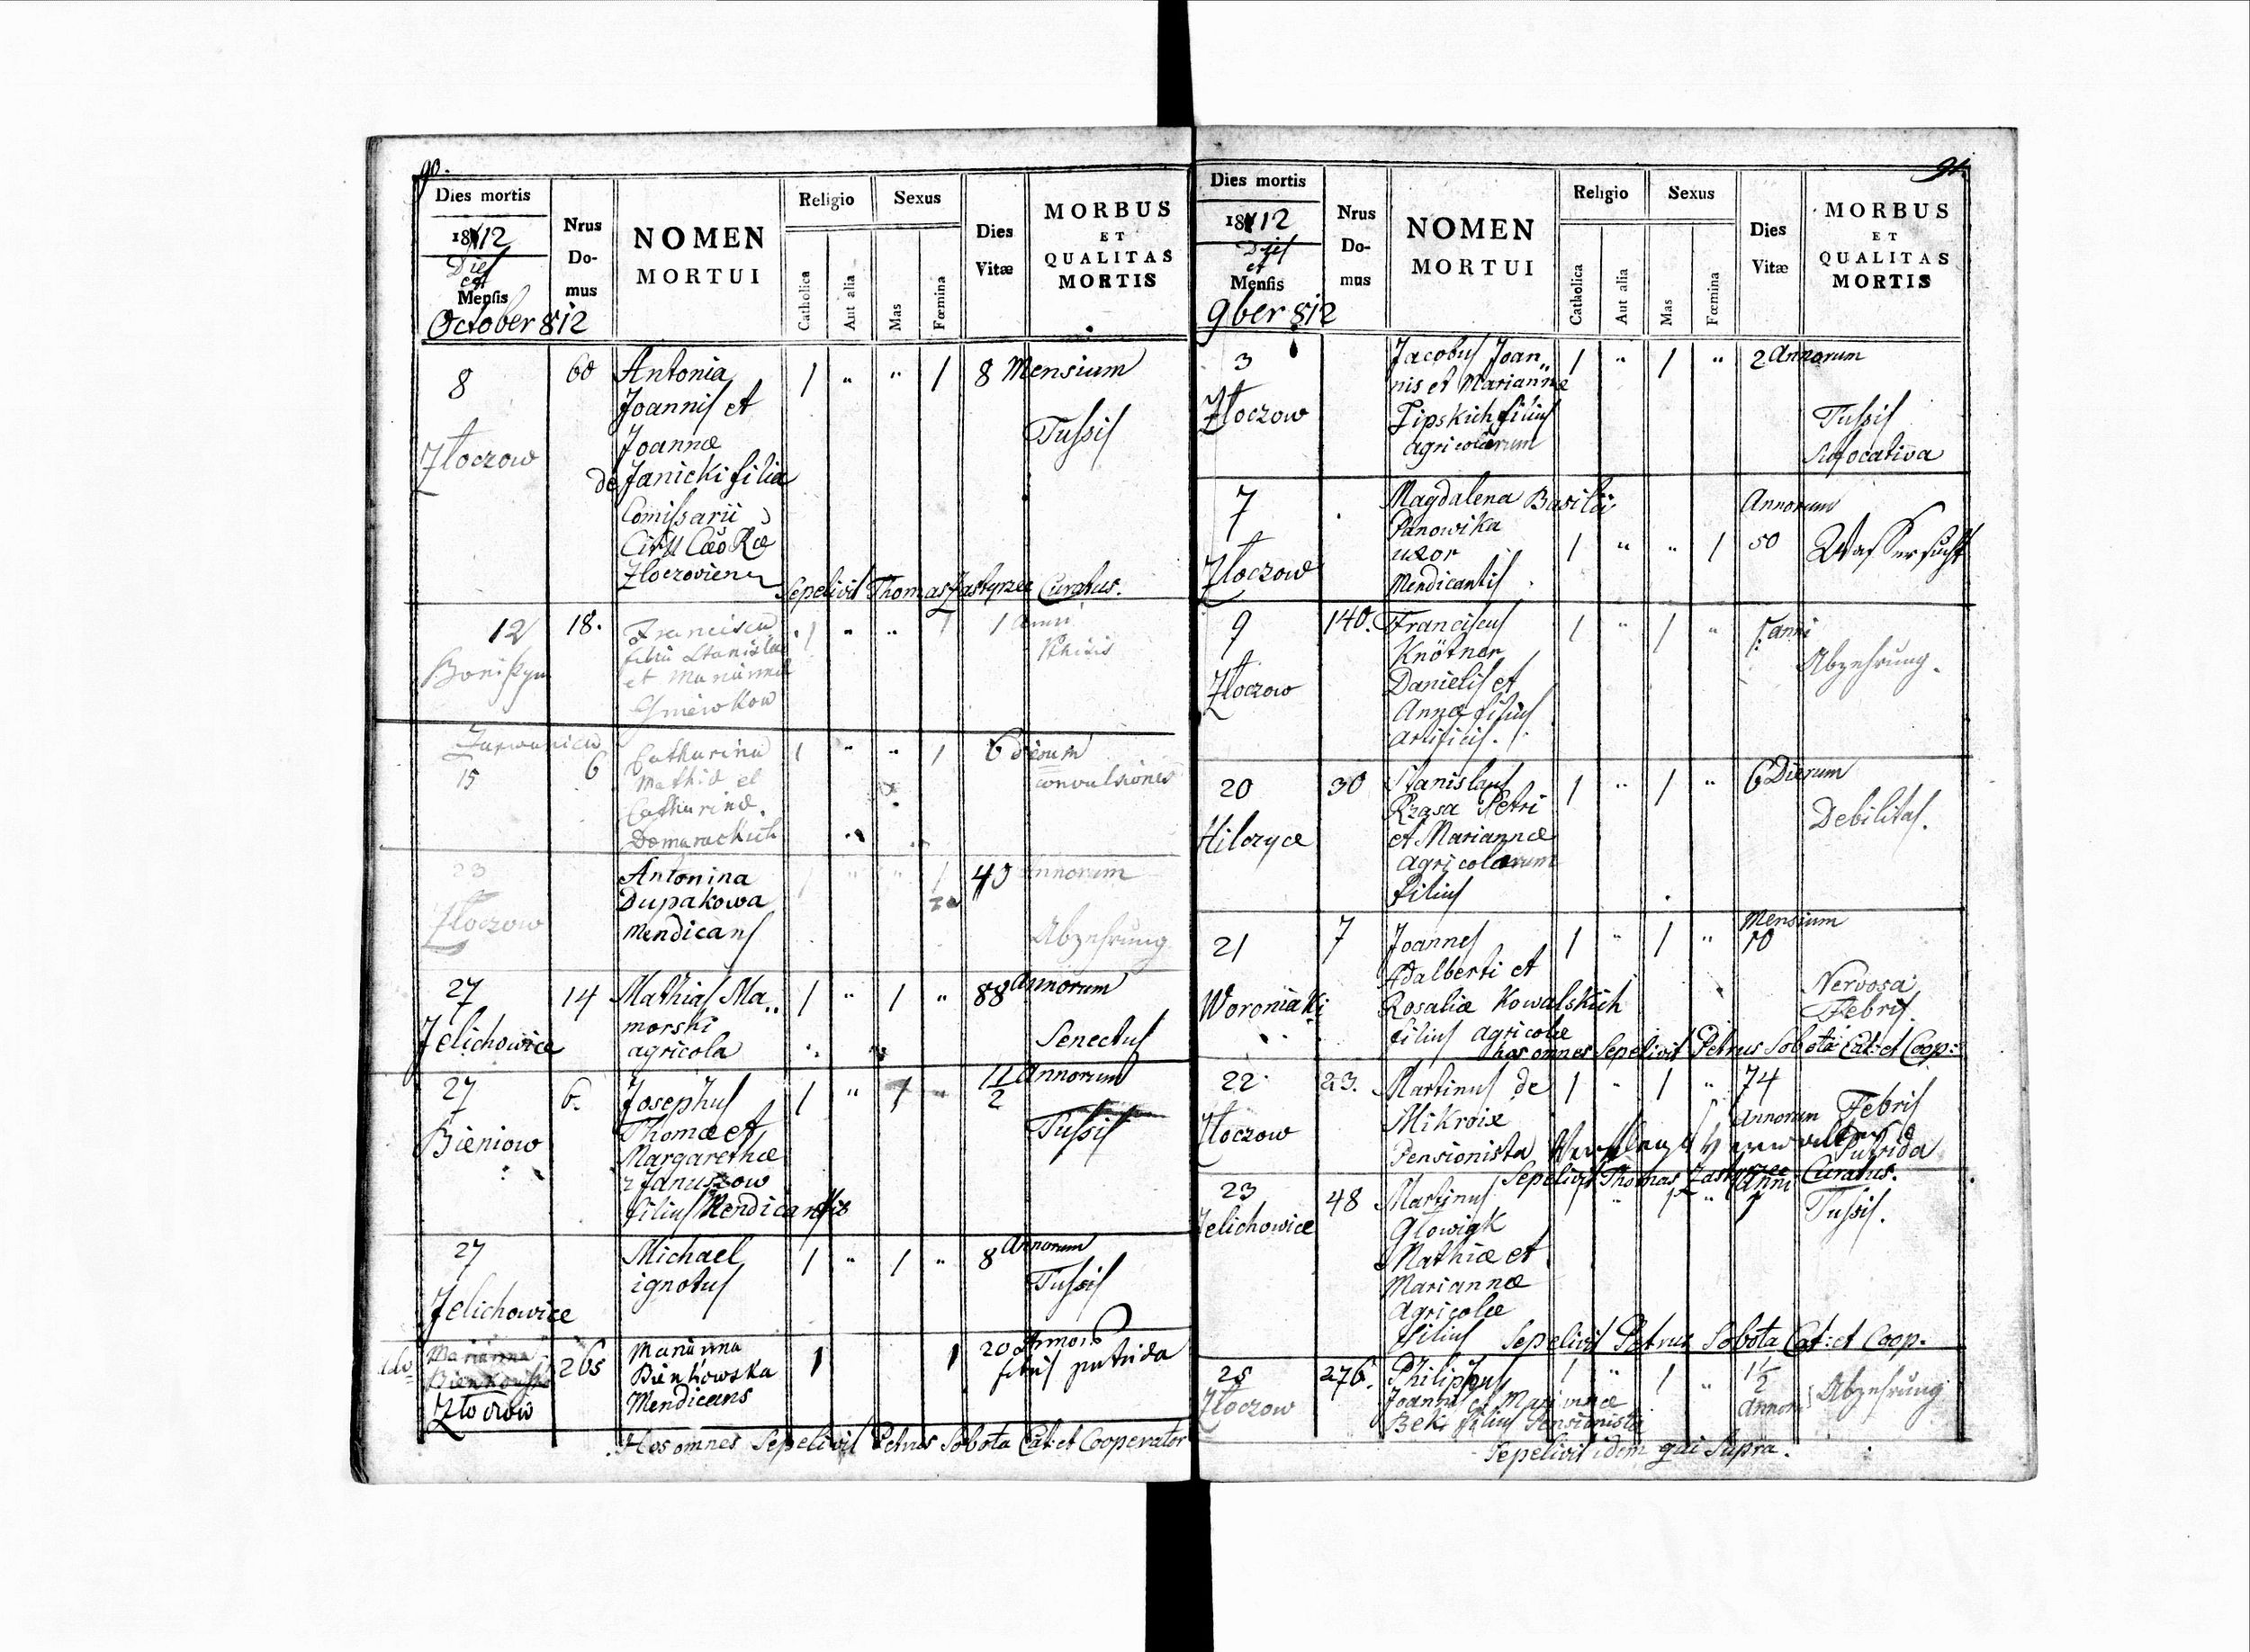 90.
Dies mortis
1812
Dies
et
Mensis
October 812
Nrus
Do-
mus
NOMEN
MORTUI
Religio
Catholica
Aut alia
Sexus
Mas
Fœmina
Dies
Vitæ
MORBUS
ET
QUALITAS
MORTIS
8 60 Antonia 1 " " 1 8 Mensium
Joannis et
Złoczow Joannæ Tussis
de Janicki filia
Comissarii
Złoczoviens
Sepelivit Thomas Zastyrzec Curatus.
12 18. Francisca 1 " " 1 1 Anni
filia Stanislai Phisis
et Marianna
Gniewkow
Zarwanica
15 6 Catharina 1 " " 1 6 dierum
Mathiæ et convulsiones
Catharinæ
Domarackich
23 Antonina 1 " " 1 40 Annorum
Dupakowa
Złoczow Mendicans Abzehrung
27 14 Mathias Ma„ 1 " 1 " 88 Annorum
morski Senectus
Jelichowice agricola
27 6. Josephus 1 " 1 " 1 1/2 Annorum
Bieniow Thomæ et Tussis
Margarethæ
Januszow
filius Mendicantis
27 Michael 1 " 1 " 8 Annorum
ignotus Tussis
Jelichowice
Marianna
Bienkowska
265 Marianna 1 1 20 Annorum
Bienkowska febris putrida
Złoczow Mendicans
Hos omnes Sepelivit Petrus Sobota Cat: et Cooperator
91.
Dies mortis
1812
Dies
et
Mensis
9ber 812
Nrus
Do-
mus
NOMEN
MORTUI
Religio
Catholica
Aut alia
Sexus
Mas
Fœmina
Dies
Vitæ
MORBUS
ET
QUALITAS
MORTIS
3 Jacobus Joan„ 1 " 1 " 2 Annorum
nis et Mariannæ
Złoczow Lipskich filius Tussis
agricolarum Sufocativa
7 Magdalena Basilii Annorum
Panowika
uxor 1 " " 1 50 Wassersucht
Złoczow Mendicantis
9 140. Franciscus 1 " 1 " 1 anni
Knötner Abzehrung.
Złoczow Danielis et
Annæ filius
artificis.
20 30 Stanislaus 1 " 1 " 6 Dierum
Rzasa Petri
Hilczyce et Mariannæ Debilitas.
agricolarum
filius
21 7 Joannes 1 " 1 " Mensium
10
Adalberti et Nervosa
Woroniaki Rosaliæ Kowalskich Febris
filius agricolæ
hos omnes Sepelivit Petrus Sobota Cat: et Coop:
22 23. Martinus de 1 " 1 " 74
Złoczow Annorum Febris
Pensionista Putrida
Sepelivit Thomas Zastyrzec Curatus.
23 48 Martinus 1 " 1 " Anni
1 Tussis.
Jelichowice Głowiak
Mathiæ et
Mariannæ
Agricolæ
filius Sepelivit Petrus Sobota Cat: et Coop.
25 276. Philippus 1 " 1 " 1 1/2
Złoczow Joannis et Mariannæ Annorum Abzehrung
Bek filius Pensionista
Sepelivit idem qui Supra.